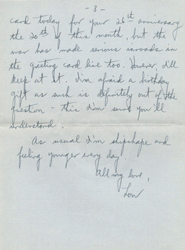 - 3 -
card today for your 26th anniversary
the 20th of this month, but the
war has made serious inroads in
the greeting card line too. However, I'll
keep at it. I'm afraid a birthday
gift as such is definitely out of the
question - this I'm sure you'll
understand.
As usual I'm shipshape and
feeling younger every day.
All my love,